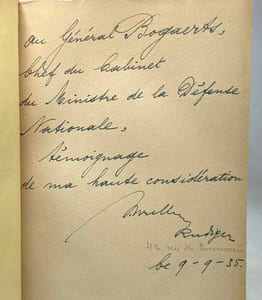 au Général Bogaerts,
Chef du Cabinet
du Ministre de la Défense
Nationale,
témoignage
de ma haute considération
Rudiger
42 rue du
le 9-9-35.